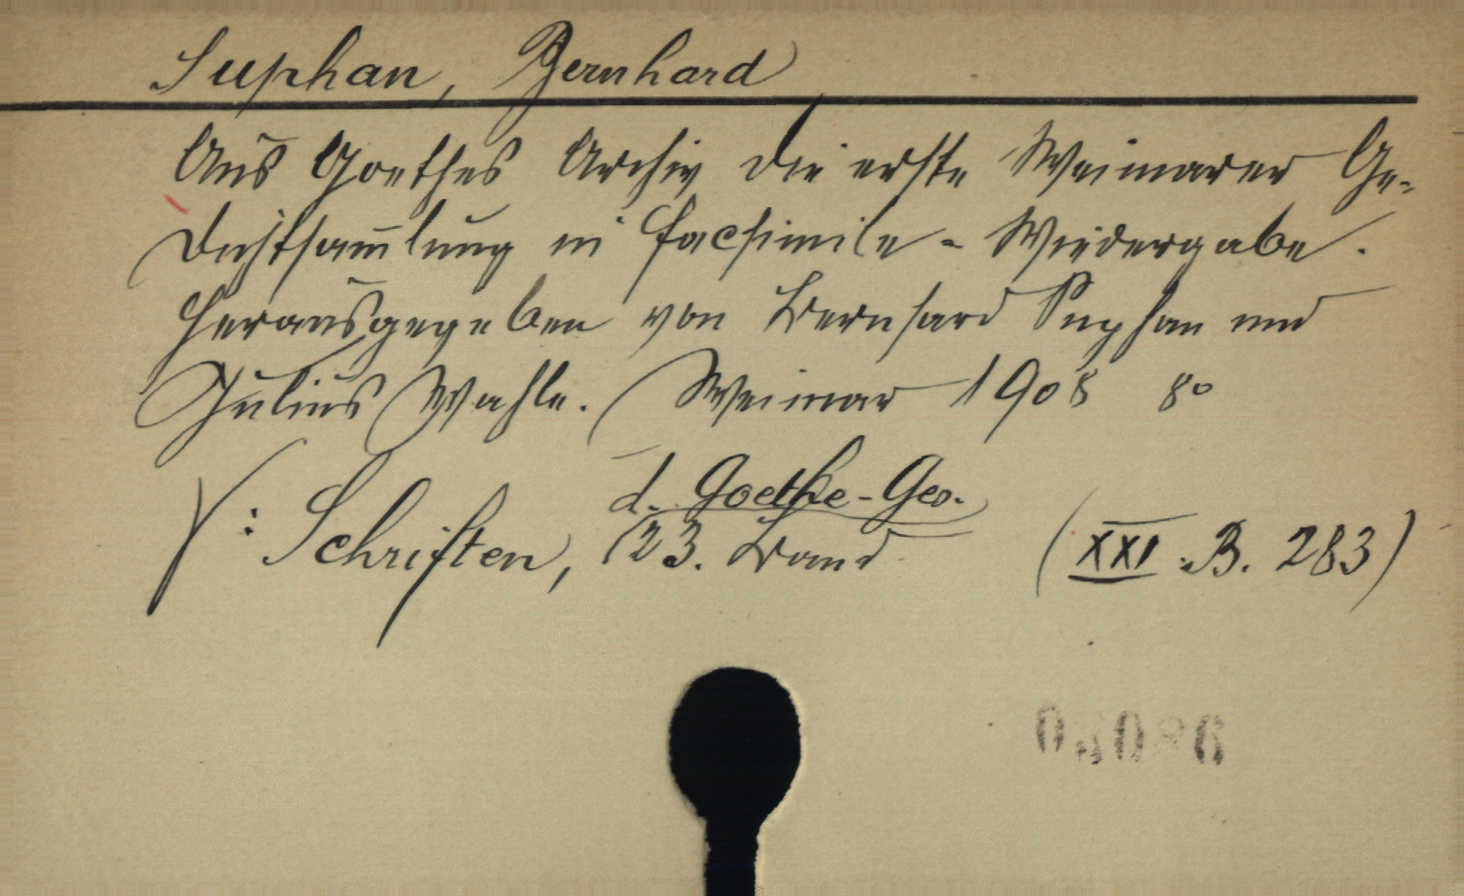 Suphan, Bernhard
Aus Goethes Archiv die erste Weimarer Ge-
dichtsam̄lung in Facsimile-Wiedergabe.
Herausgegeben von Bernhard Suphan und
Julius Wahle. Weimar 1908 8º
V: Schriften, d. Goethe-Ges.
23. Band (XXI. B. 283)